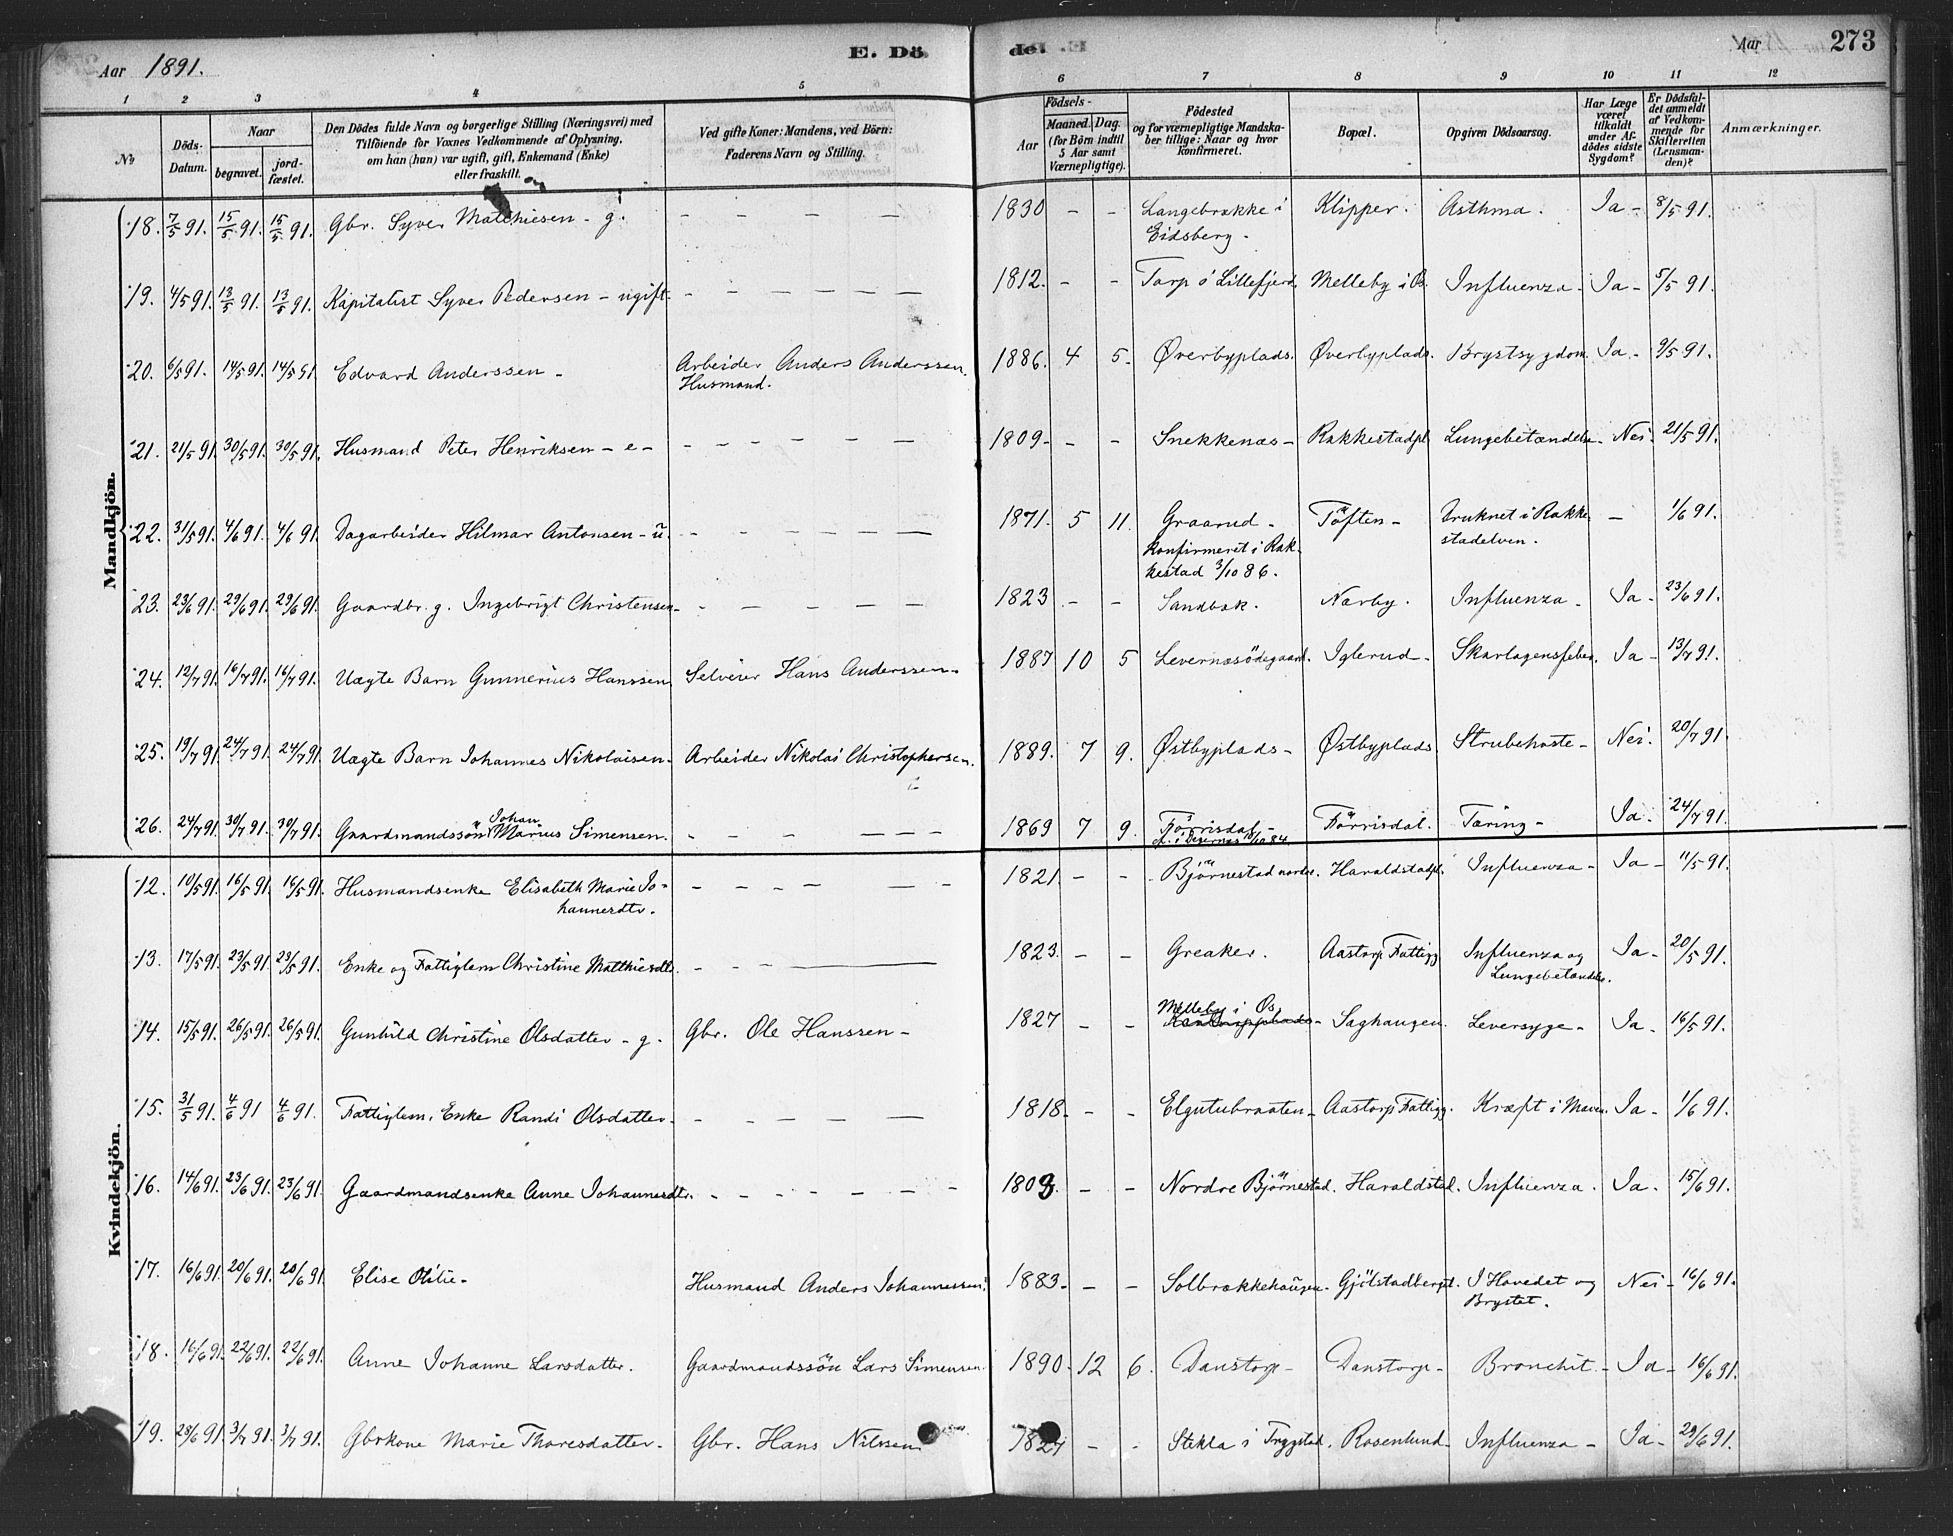 Aar 1891. E. Dö de. Aar 273
1 2 3 4 5 6 7 8 9 10 11 12
No
Döds-Datum.
Naar
begravet.
jord-fæstet.
Den Dödes fulde Navn og borgerlige Stilling (Næringsvei) med
Tilföiende for Voxnes Vedkommende af Oplysning,
om han (hun) var ugift, gift, Enkemand (Enke)
eller fraskilt.
Ved gifte Koner: Mandens, ved Börn:
Faderens Navn og Stilling.
Födsels-
Aar
Maaned. Dag.
(for Börn indtil
5 Aar samt
Værnepligtige).
Födested
og for værnepligtige Mandska-
ber tillige: Naar og hvor
konfirmeret.
Bopæl.
Opgiven Dödsaarsag.
Har Læge
været
tilkaldt
under Af-
dödes sidste
Sygdom?
Er Dödsfal-
det anmeldt
af Vedkom-
mende for
Skifteretten
(Lensman-
den)?
Anmærkninger.
Mandkjön.
18. 7/5 91. 15/5 91. 15/5 91. Gbr. Syver Matthiesen - g. - - - - - 1830 - - Langebrække i Klipper. Asthma. Ja - 8/5 91.
Eidsberg -
19. 4/5 91. 13/5 91. 13/5 91. Kapitalist Syver Pedersen - ugift - - - - - 1812. - - Torp ö Lillefjerd. Melleby i Øs. Influenza - Ja - 5/5 91.
20. 6/5 91. 14/5 91. 14/5 91 Edvard Anderssen - Arbeider Anders Anderssen. 1886. 4 5. Øverbyplads. Øverbyplads. Brystsygdom. Ja - 9/5 91.
Husmand.
21. 21/5 91. 30/5 91. 30/5 91. Husmand Peter Henriksen - e - - - - - - 1809 - - - Snekkenæs - Rakkestadpl Lungebetændelse - Nei. 21/5 91.
22. 31/5 91. 4/6 91. 4/6 91. Dagarbeider Hilmar Antonsen - u. - - - - - 1871. 5 11. Graarud - Töften - Druknet i Rakke- - 1/6 91.
konfirmeret i Rak- stadelven.
kestad 3/10 86.
23. 23/6 91. 29/6 91. 29/6 91. Gaardbr. g. Ingebrigt Christensen - - - - - - 1823 - - Sandbæk. Narby. Influenza - Ja - 23/6 91.
24. 12/7 91. 16/7 91. 16/7 91. Uægte Barn Gunnerius Hanssen Selveier Hans Anderssen - 1887 10 5 Levernæsödegaard. Iglerud - Skarlagensfeber. Ja - 13/7 91.
25. 19/7 91. 24/7 91. 24/7 91. Uægte Barn Johannes Nikolaisen - Arbeider Nikolai Christophersen. 1889. 7 9. Østbyplads - Østbyplads. Strubehoste - Nei. 20/7 91.
Johan
26. 24/7 91. 30/7 91. 30/7 91. Gaardmandssön Marius Simensen. - - - - - - 1869 7 9. Förrisdal - Förrisdal. Tæring - Ja. 24/7 91.
Kvindekjön.
12. 10/5 91. 16/5 91. 16/5 91. Husmandsenke Elisabeth Marie Jo- - - - - - - 1821. - - Björnestad nordre. Haraldstadpl. Influenza - Ja - 11/5 91.
hannesdtr.
13. 17/5 91. 23/5 91. 23/5 91. Enke og Fattiglem Christine Matthiesdtr. - - - 1823. - - Greaker. Aastorp Fattigg Influenza og Ja - 20/5 91.
Lungebetændelse.
Melleby i Øs
14. 15/5 91. 26/5 91. 26/5 91. Gunhild Christine Olsdatter - g. Gbr. Ole Hanssen - 1827 - - Saghaugen. Leversyge - Ja - 16/5 91.
15. 31/5 91. 4/6 91 4/6 91. Fattiglem. Enke Randi Olsdatter. - - - - - 1818 - - - Elgutubraaten - Aastorp Fattigg. Kræft i Maven. Ja - 1/6 91.
16. 14/6 91. 23/6 91. 23/6 91. Gaardmandsenke Anne Johannesdtr. - - - - - - 1808. - - Nordre Björnestad. Haraldstad. Influenza. Ja. 15/6 91.
17. 16/6 91. 20/6 91. 20/6 91. Elise Otilie - Husmand Anders Johannessen. 1883 - - - Solbrækkehaugen. Gjölstadbergpl. I Hovedet og Nei - 16/6 91.
Brystet.
18. 16/6 91. 22/6 91. 22/6 91. Anne Johanne Larsdatter. Gaardmandssön Lars Simensen. 1890 - 12 6. Danstorp - Danstorp - Bronchit - Ja - 16/6 91.
19. 28/6 91. 3/7 91. 3/7 91. Gbrkone Marie Thoresdatter - Gbr. Hans Nilssen 1824 - - Stikla i Trygstad. Rosenlund - Influenza - Ja - 29/6 91.